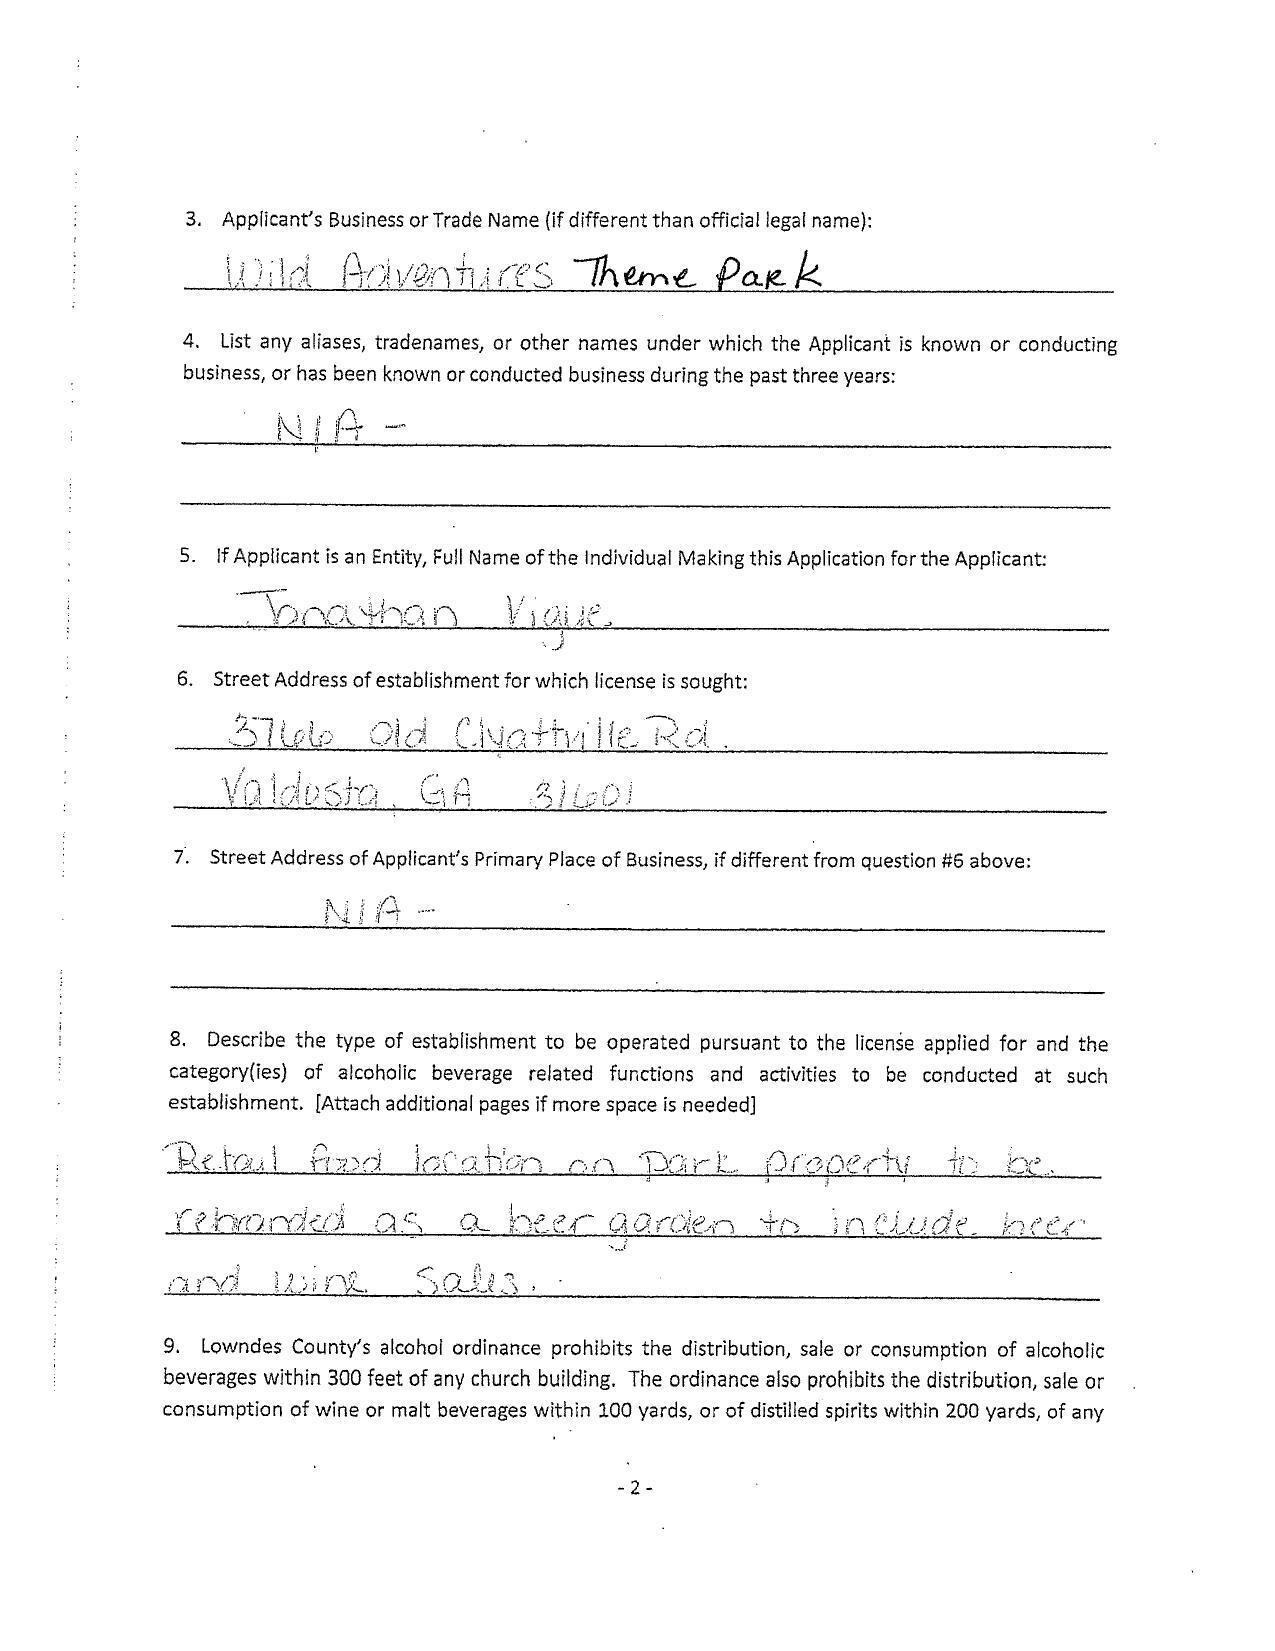 3. Applicant's Business or Trade Name (if different than official legal name):
Wild Adventures Theme Park
4. List any aliases, tradenames, or other names under which the Applicant is known or conducting
business, or has been known or conducted business during the past three years:
N/A -
5. If Applicant is an Entity, Full Name of the Individual Making this Application for the Applicant:
Jonathan Vigue
6. Street Address of establishment for which license is sought:
3766 Old Clyattville Rd.
Valdosta, GA 31601
7. Street Address of Applicant's Primary Place of Business, if different from question #6 above:
N/A -
8. Describe the type of establishment to be operated pursuant to the license applied for and the
category(ies) of alcoholic beverage related functions and activities to be conducted at such
establishment. [Attach additional pages if more space is needed]
Retail food location on park property to be
rebranded as a beer garden to include beer
and wine sales.
9. Lowndes County's alcohol ordinance prohibits the distribution, sale or consumption of alcoholic
beverages within 300 feet of any church building. The ordinance also prohibits the distribution, sale or
consumption of wine or malt beverages within 100 yards, or of distilled spirits within 200 yards, of any
- 2 -